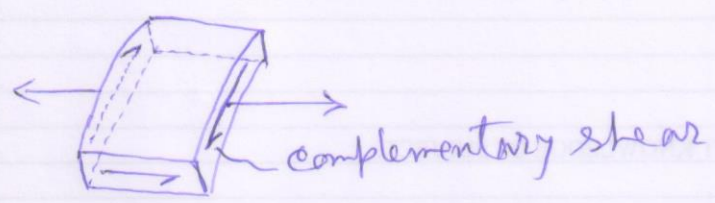 complementary shear